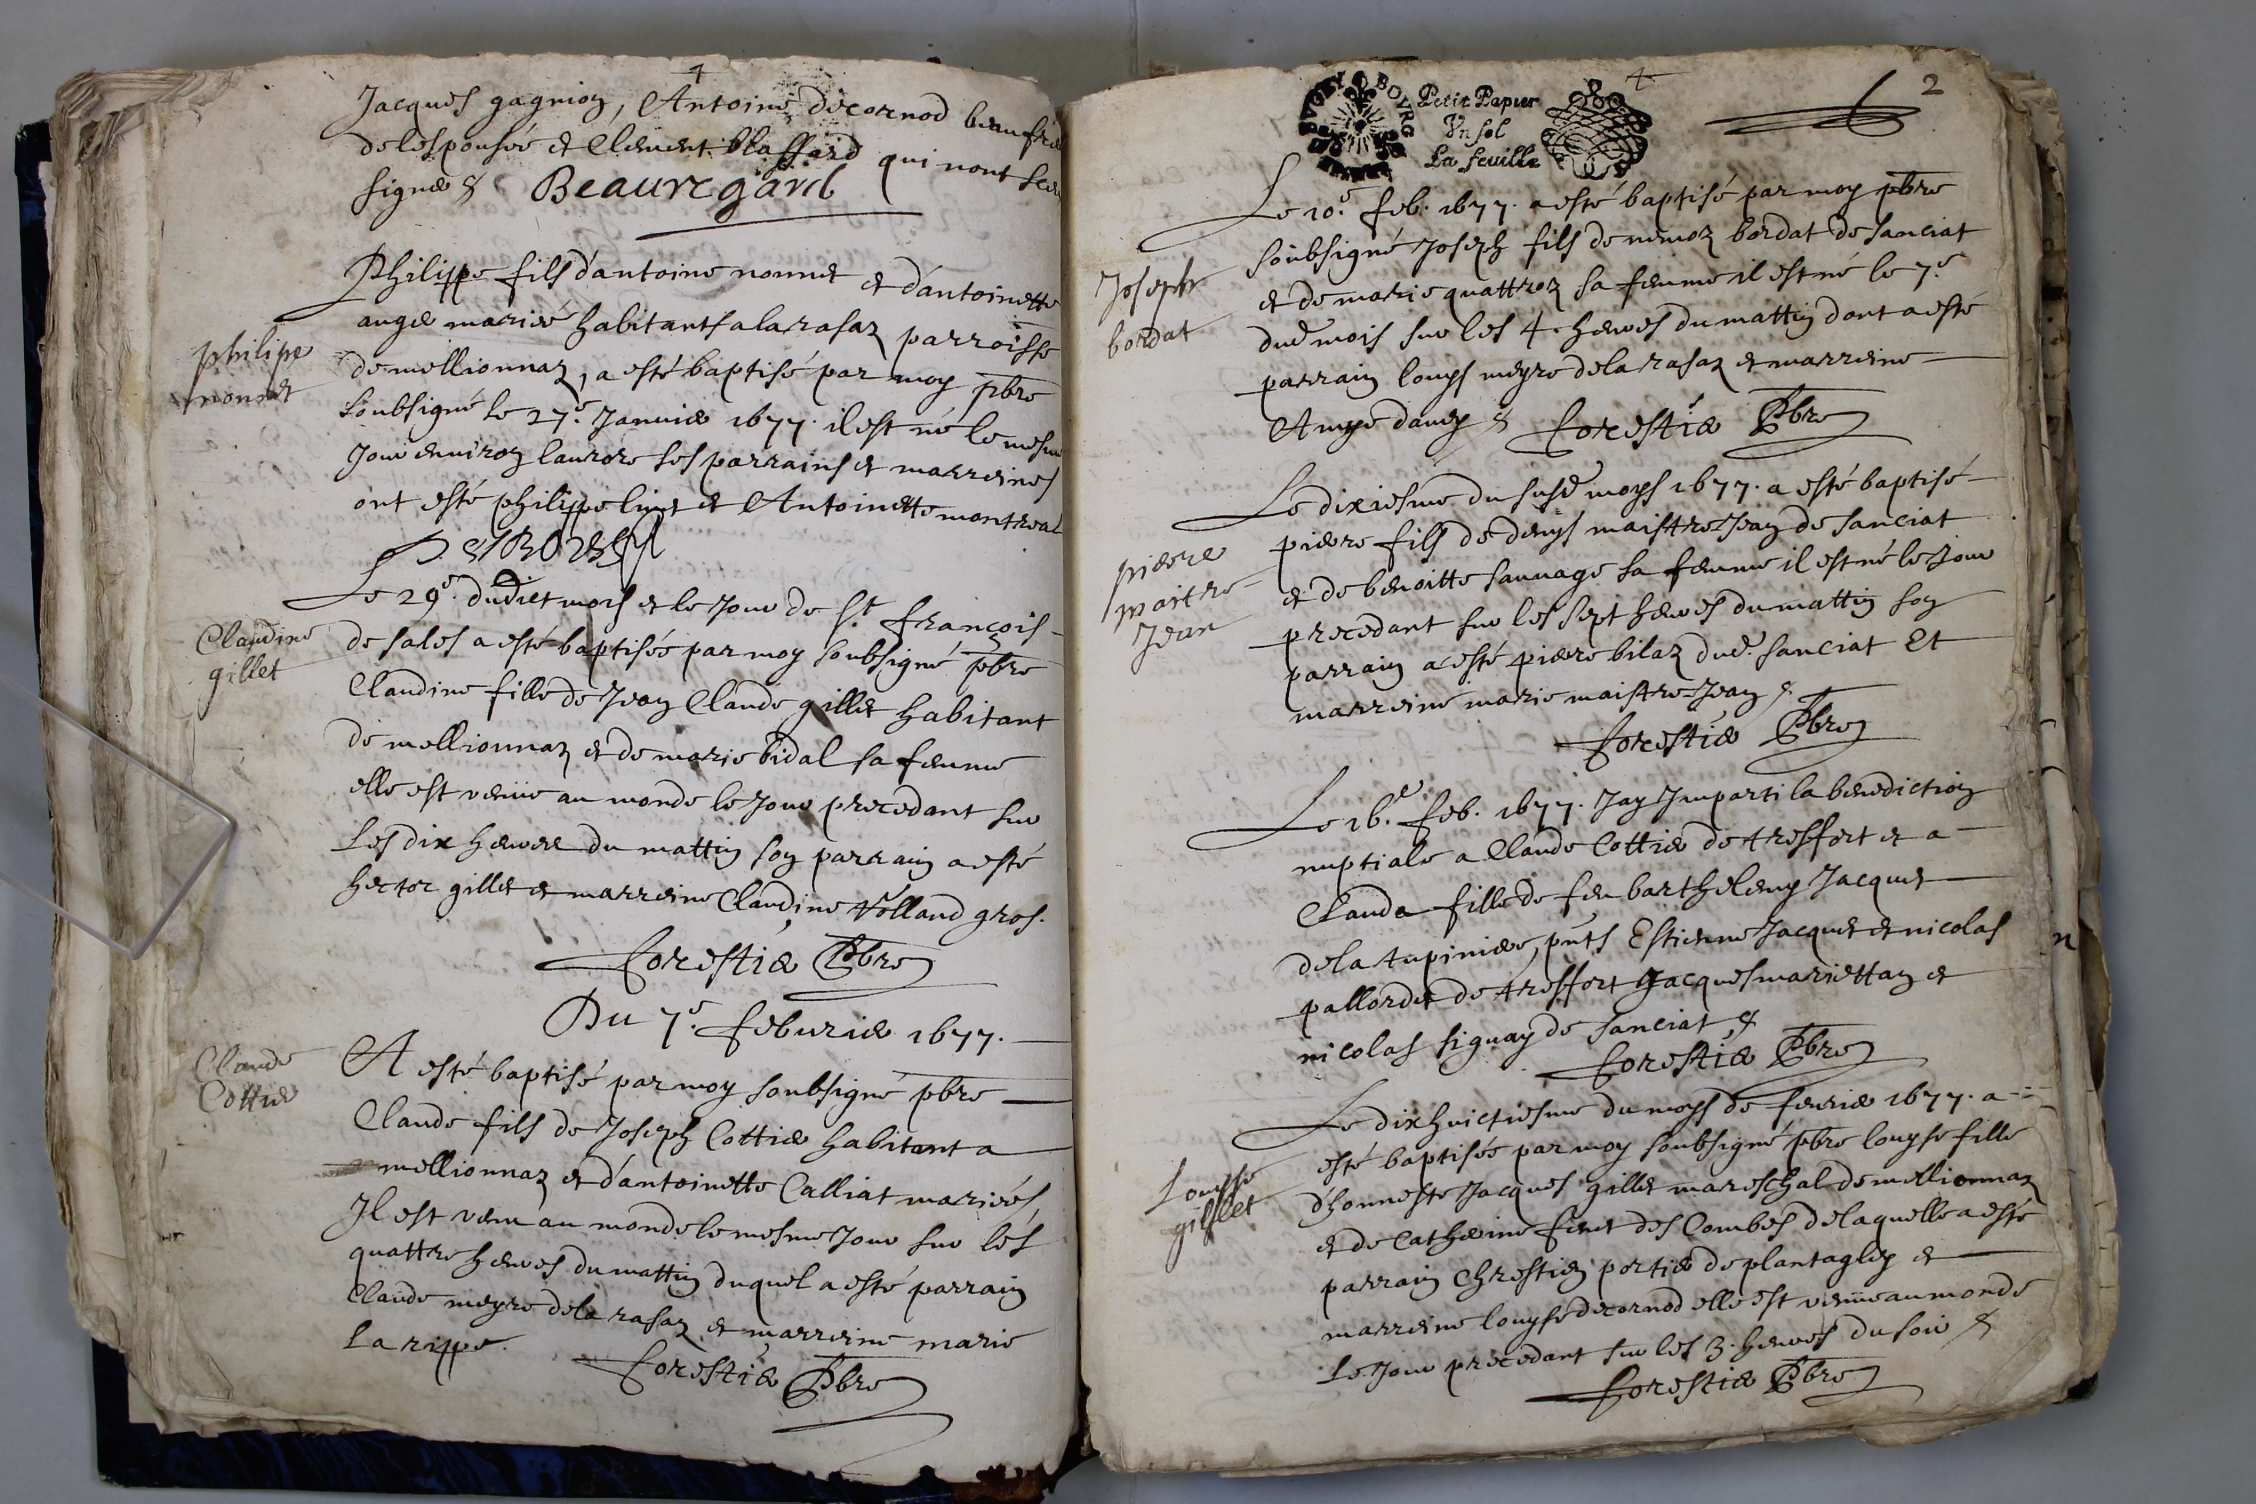 4
Jacques gagnion, Antoine decornod beaufre
de lespousée et Clement blaffard qui nont sceu
signer &
Beauregard
Philippe fils dantoine nonnet et dantoinette
anger mariés habitants a la rasaz parroisse
de mellionnaz, a esté baptisé par moy pbre
soubsigné le 27e. Janvier 1677. il est né le mesme
Jour environ laurore ses parrains et marreines
ont esté philippe linet et Antoinette montreal
philipe
nonnet
Le 29e. dudict mois et le Jour de St. françois
de sales a esté baptisée par moy soubsigné pbre
Claudine fille de Jean Claude gillet habitant
de mellionnaz et de marie bidal sa femme
elle est venüe au monde le Jour precedant sur
les dix heures du mattin son parrain a esté
hector gillet et marreine Claudine Volland gros.
Forestier Pbre
Claudine
gillet
Du 7e. feburier 1677.
A esté baptisé par moy soubsigné pbre
Claude fils de Joseph Cottier habitant a
mellionnaz et dantoinette Calliat mariés,
Il est venu au monde le mesme Jour sur les
quattre heures du mattin duquel a esté parrain
Claude meyre de la rasaz et marreine marie
La rippe.
Forestier Pbre
Claude
Cottier
BOVRG
Petit Papier
Vn sol
La feuille
4
2
Le 10e. feb. 1677. a esté baptisé par moy pbre
soubsigné Joseph fils de nemoz bordat de sanciat
et de marie quattroz sa femme il est né le 7e.
dud mois sur les 4. heures du mattin dont a esté
parrain louys meyre de la rasaz et marreine
Aymé davey & Forestier Pbre
Joseph
bordat
Le dixiesme du susd moys 1677. a esté baptisé
pierre fils de denys maistre Jean de sanciat
et de benoitte sauvage sa femme il est né le Jour
precedant sur les sept heures du mattin son
parrain a esté pierre bilaz dud. sanciat Et
marreine marie maistre Jean &
Forestier Pbre
pierre
maitre
Jean
Le 16e. feb. 1677. Jay Imparti la benediction
nuptiale a Claude Cottier de treffort et a
Clauda fille de feu barthelemy Jacquet
de la tupinier, pnts Estienne Jacquet et nicolas
pallordet de treffort Jacques mariettan et
nicolas siguay de sanciat, &
Forestier Pbre
Le dix huictiesme du moys de fevrier 1677. a
esté baptisée par moy soubsigné pbre louyse fille
dhonneste Jacques gillet mareschal de mellionnaz
et de Catherine finet des Combes de laquelle a esté
parrain Chrestien portier de plantaglay et
marreine louyse decornod elle est venüe au monde
le Jour precedant sur les 3. heures du soir &
Forestier Pbre
Louyse
gillet